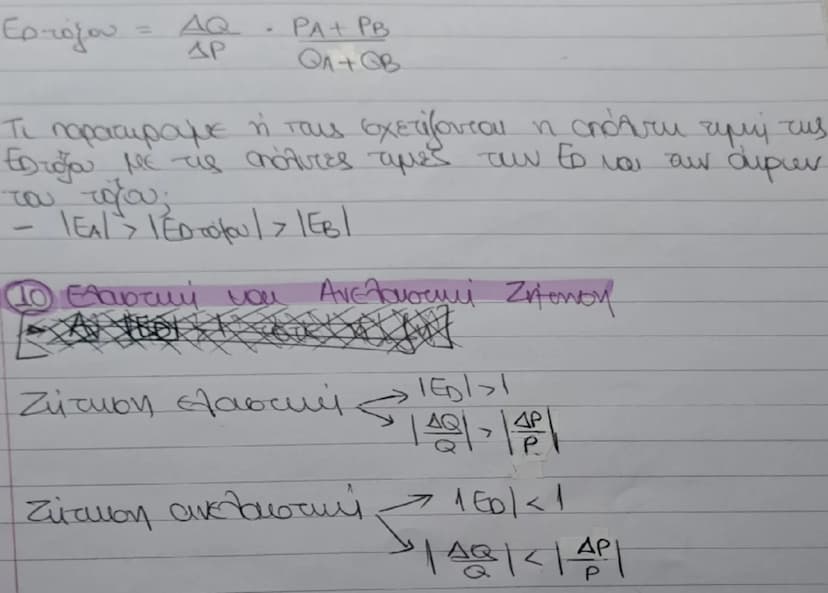 ED τόξου = ΔQ/ΔP · PA + PB / QA + QB
Τι παρατηρούμε ή πως σχετίζονται η απόλυτη τιμή της
ED τόξου με τις απόλυτες τιμές των ED και των άκρων
του τόξου;
- |EA| > |ED τόξου| > |EB|
10 Ελαστική και Ανελαστική Ζήτηση
Ζήτηση ελαστική → |ED| > 1
→ |ΔQ/Q| > |ΔP/P|
Ζήτηση ανελαστική → |ED| < 1
→ |ΔQ/Q| < |ΔP/P|